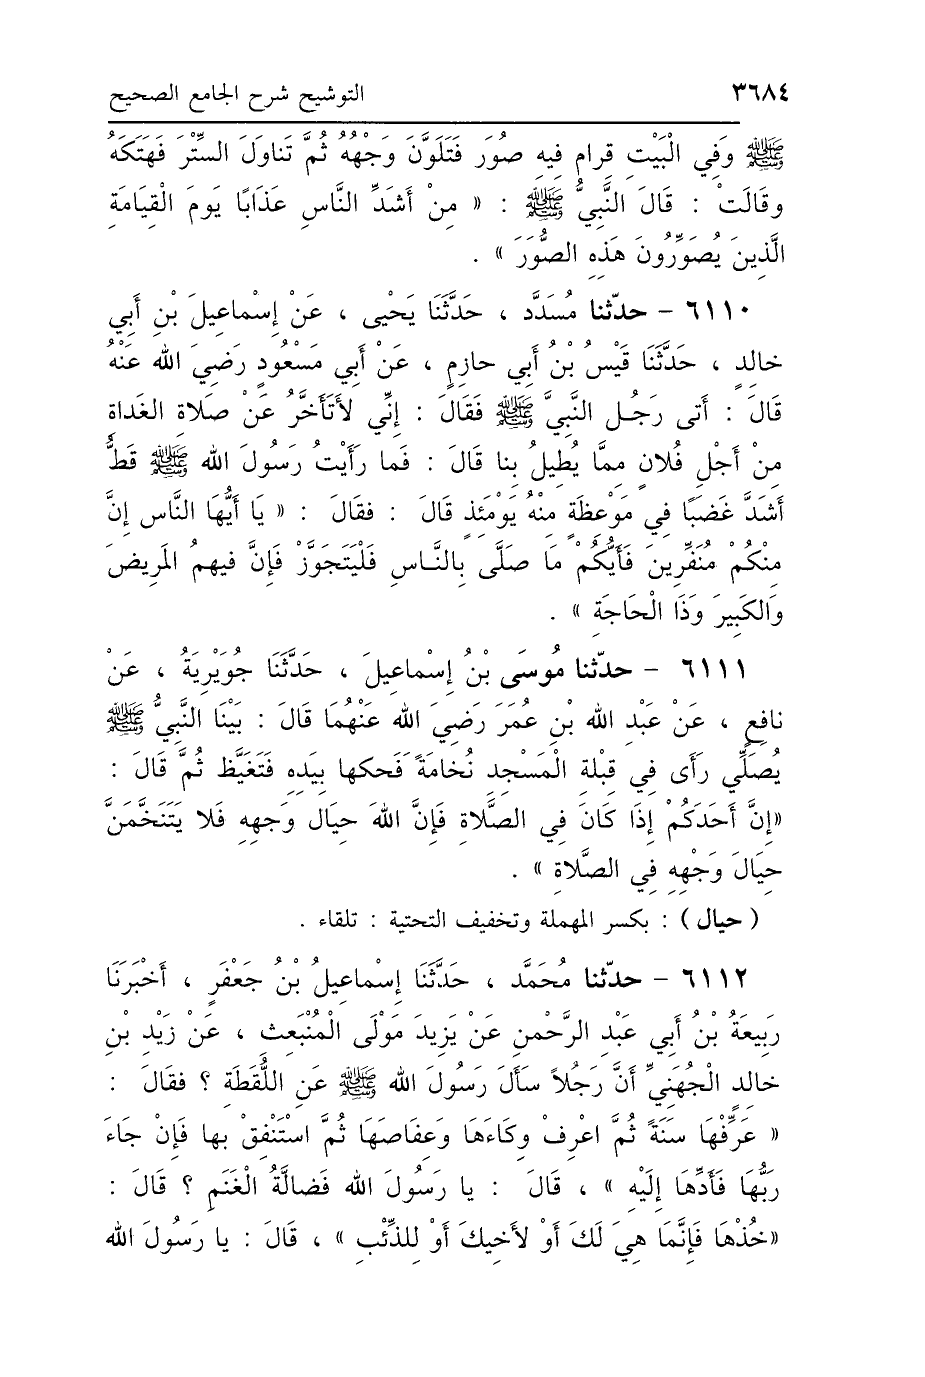 ٣٦٨٤ التوشيح شرح الجامع الصحيح
ﷺ وَفِي الْبَيْتِ قِرام فِيهِ صُوَر فَتَلَوَّنَ وَجْهُهُ ثُمَّ تَناوَلَ السِّتْرَ فَهَتَكَهُ
وقَالَتْ : قَالَ النَّبِيُّ ﷺ : « مِنْ أَشَدِّ النَّاسِ عَذَابًا يَومَ الْقِيَامَةِ
الَّذِينَ يُصَوِّرُونَ هَذِهِ الصُّوَرَ » .
٦١١٠ - حدّثنا مُسَدَّد ، حَدَّثَنَا يَحْيى ، عَنْ إِسْماعِيلَ بْنِ أَبِي
خالِدٍ ، حَدَّثَنَا قَيْسُ بْنُ أَبِي حازِمٍ ، عَنْ أَبِي مَسْعُودٍ رَضِيَ الله عَنْهُ
قَالَ : أَتى رَجُل النَّبِيَّ ﷺ فَقَالَ : إِنِّي لأَتَأَخَّرُ عَنْ صَلاةِ الغَداةِ
مِنْ أَجْلِ فُلانٍ مِمَّا يُطِيلُ بِنا قَالَ : فَما رَأَيْتُ رَسُولَ الله ﷺ قَطُّ
أَشَدَّ غَضَبًا فِي مَوْعِظَةٍ مِنْهُ يَوْمَئِذٍ قَالَ : فقَالَ : « يَا أَيُّهَا النَّاس إِنَّ
مِنْكُمْ مُنَفِّرِينَ فَأَيُّكُمْ مَا صَلَّى بِالنَّاسِ فَلْيَتَجَوَّزْ فَإِنَّ فيهِمُ المَرِيضَ
وَالكَبِيرَ وَذَا الْحَاجَةِ » .
٦١١١ - حدّثنا مُوسَى بْنُ إِسْماعِيلَ ، حَدَّثَنَا جُوَيْرِيَةُ ، عَنْ
نافِعٍ ، عَنْ عَبْدِ الله بْنِ عُمَرَ رَضِيَ الله عَنْهُمَا قَالَ : بَيْنَا النَّبِيُّ ﷺ
يُصَلِّي رَأَى فِي قِبْلَةِ الْمَسْجِدِ نُخامَةً فَحكها بِيَدِهِ فَتَغَيَّظَ ثُمَّ قَالَ :
«إِنَّ أَحَدَكُمْ إِذَا كَانَ فِي الصَّلَاةِ فَإِنَّ اللهَ حِيَال وَجهِهِ فَلَا يَتَنَخَّمَنَّ
حِيَالَ وَجْهِهِ فِي الصَّلَاةِ » .
( حيال ) : بكسر المهملة وتخفيف التحتية : تلقاء .
٦١١٢ - حدّثنا مُحَمَّد ، حَدَّثَنَا إِسْماعِيلُ بْنُ جَعْفَرٍ ، أَخْبَرَنَا
رَبِيعَةُ بْنُ أَبِي عَبْدِ الرَّحْمنِ عَنْ يَزِيدَ مَوْلَى الْمُنْبَعِثِ ، عَنْ زَيْدِ بْنِ
خالِدٍ الْجُهَنِيِّ أَنَّ رَجُلاً سَأَلَ رَسُولَ الله ﷺ عَنِ اللُّقَطَةِ ؟ فقَالَ :
« عَرِّفْهَا سَنَةً ثُمَّ اعْرِفْ وِكَاءَهَا وَعِفَاصَهَا ثُمَّ اسْتَنْفِقْ بِها فَإِنْ جَاءَ
رَبُّهَا فَأَدِّهَا إِلَيْهِ » ، قَالَ : يا رَسُولَ الله فَضالَّةُ الْغَنَمِ ؟ قَالَ :
«خُذْهَا فَإِنَّمَا هِيَ لَكَ أَوْ لأَخِيكَ أَوْ لِلذِّئْبِ » ، قَالَ : يا رَسُولَ الله